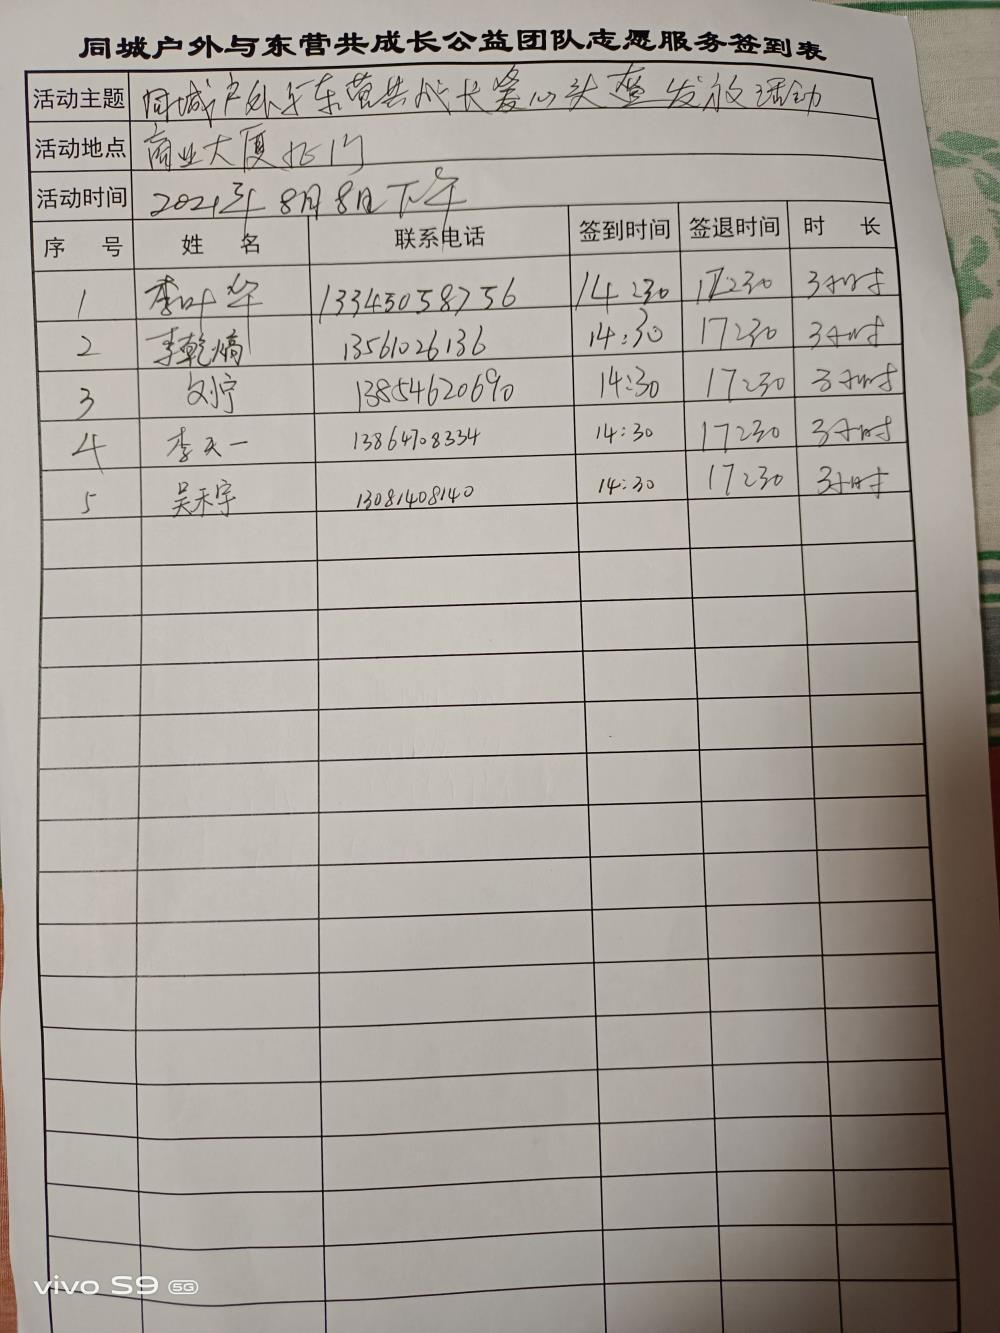 同城户外与东营共成长公益团队志愿服务签到表
活动主题 同城户外与东营共成长爱心头盔发放活动
活动地点 商业大厦北门
活动时间 2021年8月8日下午
序 号 姓 名 联系电话 签到时间 签退时间 时 长
1 李叶华 13345058756 14:30 17:30 3小时
2 李乾熇 13561026136 14:30 17:30 3小时
3 刘宁 13854620690 14:30 17:30 3小时
4 李天一 13864708334 14:30 17:30 3小时
5 吴禾宇 13081408140 14:30 17:30 3小时
vivo S9 5G